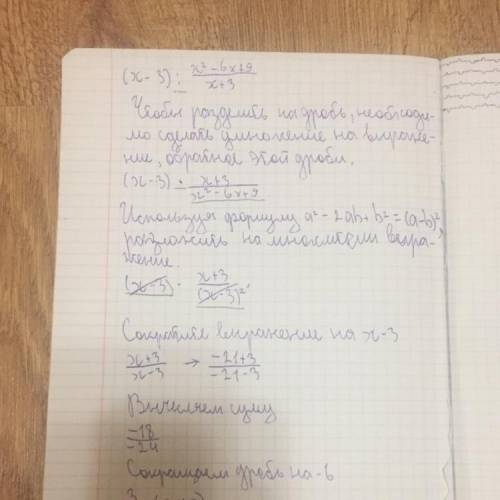 (x-3) : x²-6x+9 / x+3
Чтобы разделить на дробь, необходи-
мо сделать умножение на выраже-
ние, обратное этой дроби.
(x-3) · x+3 / x²-6x+9
Используя формулу a²-2ab+b²=(a-b)²
разложить на множители выра-
жение.
(x-3) · x+3 / (x-3)²
Сократите выражение на x-3
x+3 / x-3 → -21+3 / -21-3
Вычисляем суму
-18 / -24
Сокращаем дробь на -6